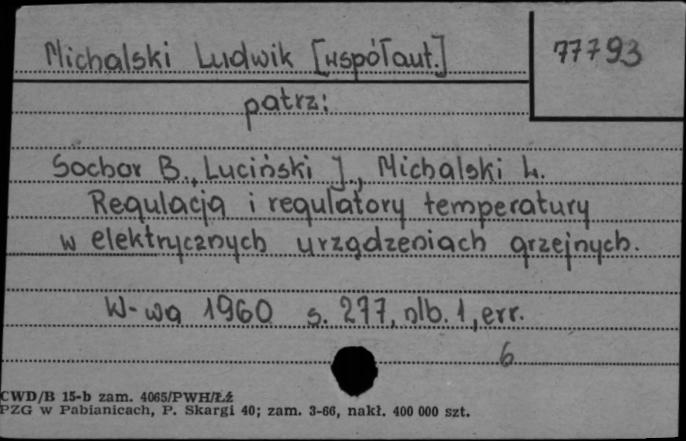 Michalski Ludwik [współaut.]
77793
patrz:
Sochor B., Luciński J., Michalski L.
Regulacja i regulatory temperatury
w elektrycznych urządzeniach grzejnych.
W-wa 1960 s. 277, nlb. 1, err.
6
CWD/B 15-b zam. 4065/PWH/Łź
PZG w Pabianicach, P. Skargi 40; zam. 3-66, nakł. 400 000 szt.